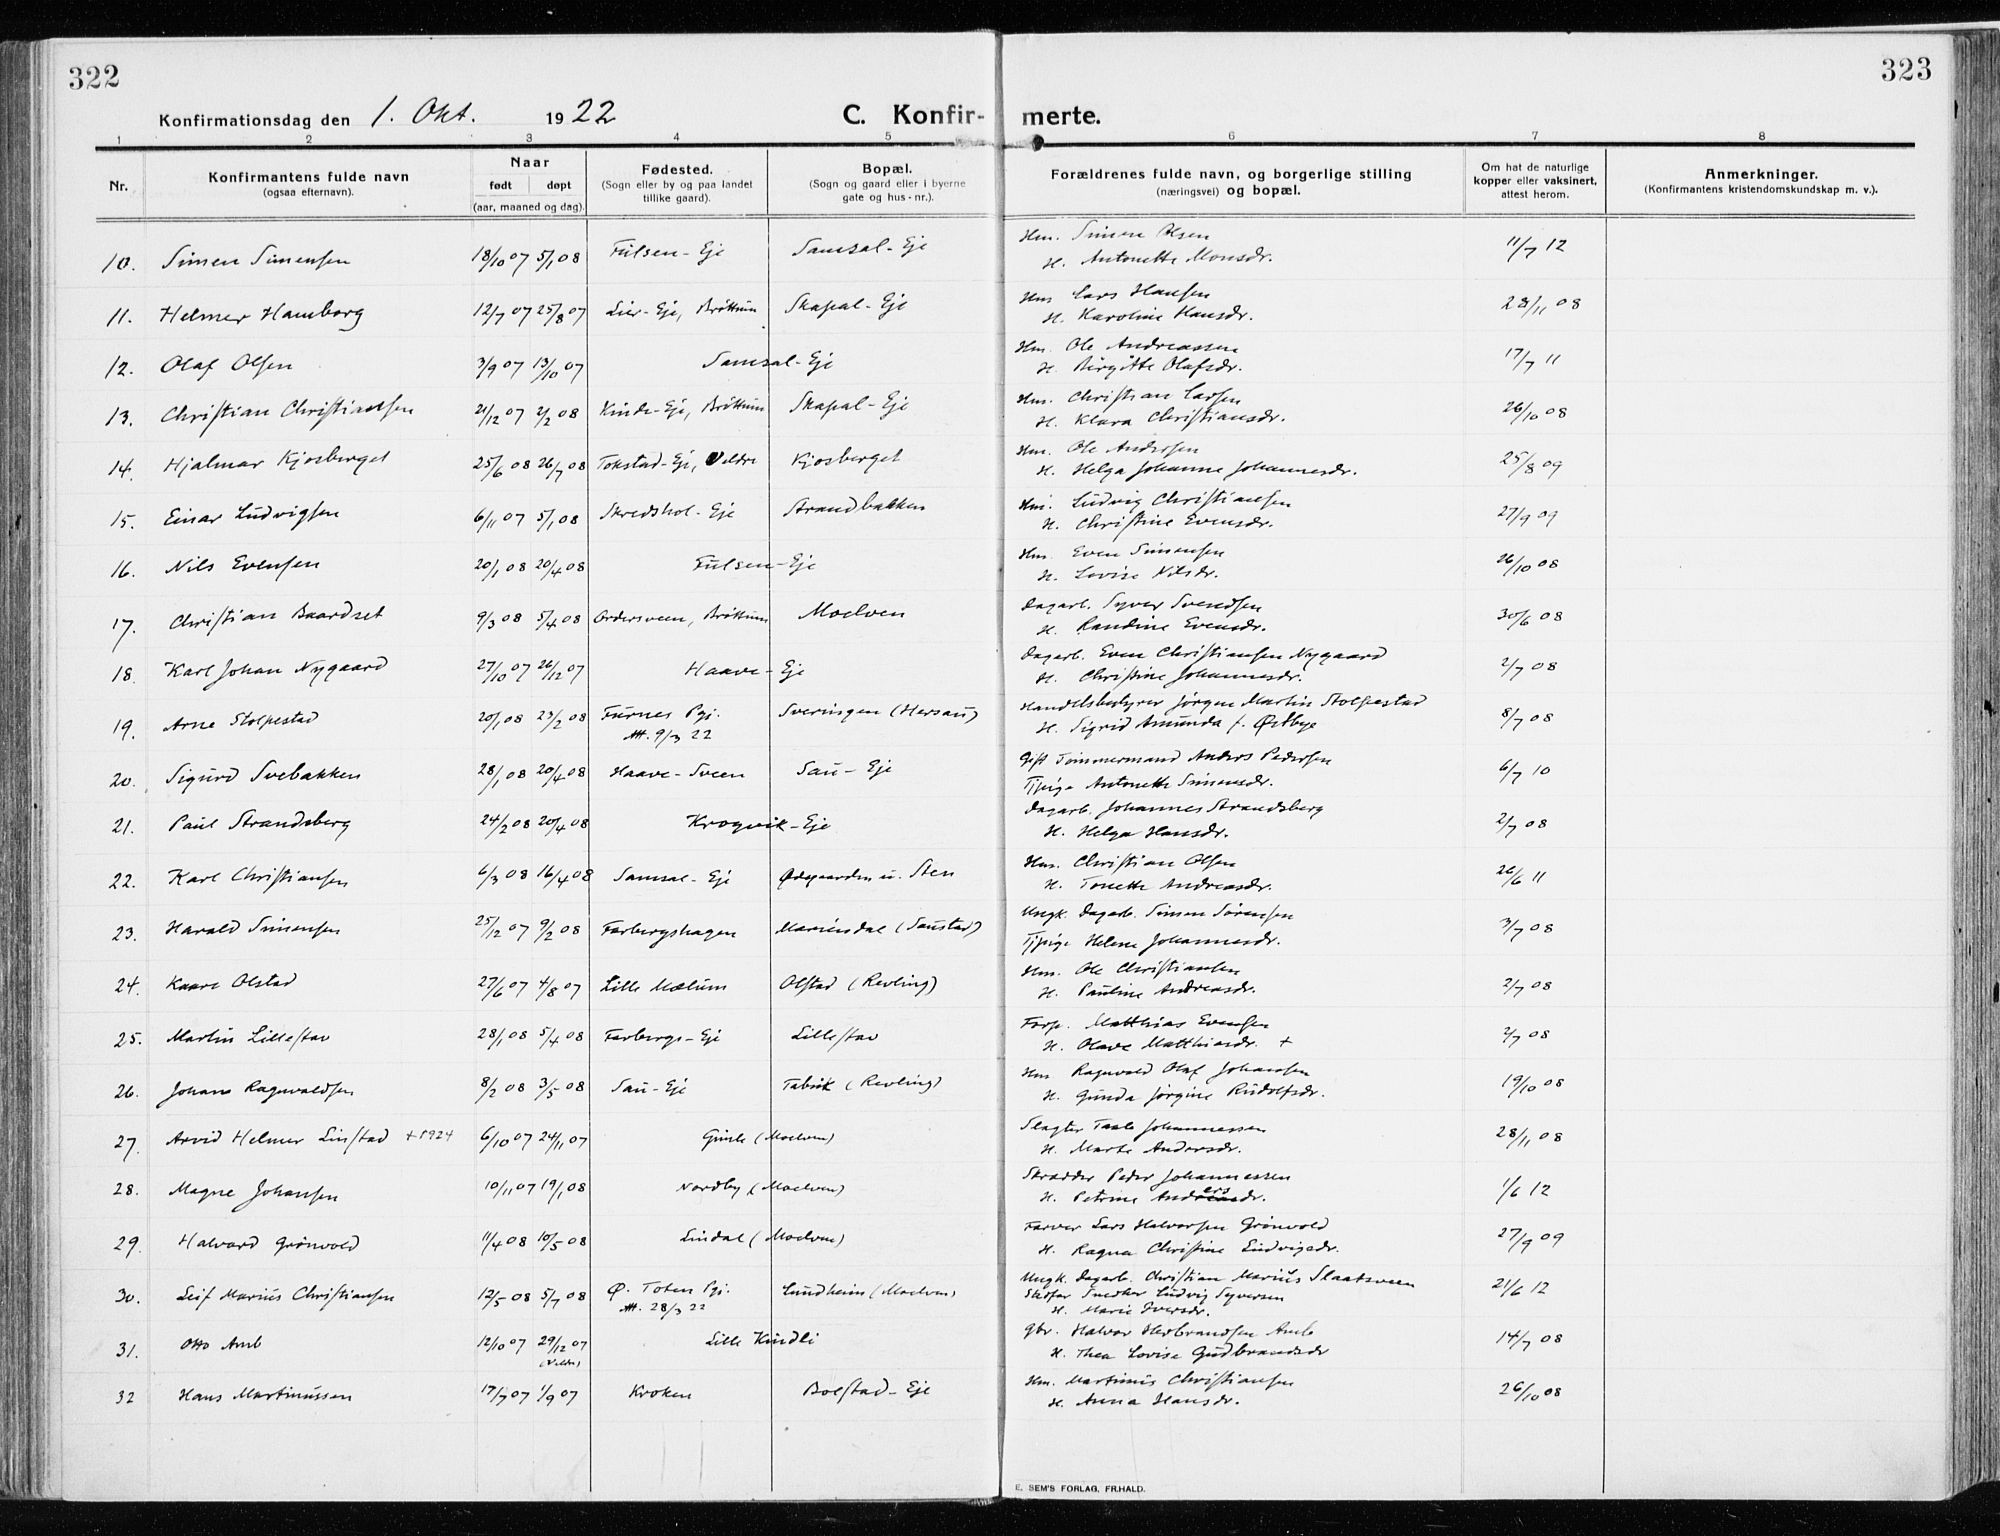 322
323
Konfirmationsdag den 1. Okt. 1922
C. Konfirmerte.
1 2 3 4 5 6 7 8
Nr.
Konfirmantens fulde navn
(ogsaa efternavn).
Naar
født døpt
(aar, maaned og dag).
Fødested.
(Sogn eller by og paa landet
tillike gaard).
Bopæl.
(Sogn og gaard eller i byerne
gate og hus-nr.).
Forældrenes fulde navn, og borgerlige stilling
(næringsvei) og bopæl.
Om hat de naturlige
kopper eller vaksinert,
attest herom.
Anmerkninger.
(Konfirmantens kristendomskundskap m. v.).
10. Simen Simensen 18/10 07 5/1 08 Fulsen-Eje Samsal-Eje Hm. Simen Olsen 11/7 12
H. Antonette Monsdr.
11. Helmer Hamborg 12/7 07 25/8 07 Lier-Eje, Brøttum Skapal-Eje Hm. Lars Hansen 28/11 08
H. Karoline Hansdr.
12. Olaf Olsen 3/9 07 13/10 07 Samsal-Eje Hm. Ole Andreassen 17/7 11
H. Birgitte Olafsdr.
13. Christian Christiansen 21/12 07 2/2 08 Kinde-Eje, Brøttum Skapal-Eje Hm. Christian Larsen 26/10 08
H. Klara Christiansdr.
14. Hjalmar Kjosberget 25/6 08 26/7 08 Tokstad-Eje, Veldre Kjosberget Hm. Ole Andersen 25/8 09
H. Helga Johanne Johannesdr.
15. Einar Ludvigsen 6/11 07 5/1 08 Skredshol-Eje Strandbakken Hm. Ludvig Christiansen 27/9 09
H. Christine Evensdr.
16. Nils Evensen 20/1 08 20/4 08 Fulsen-Eje Hm. Even Simensen 26/10 08
H. Lovise Nilsdr.
17. Christian Baardset 9/3 08 5/4 08 Ordersveen, Brøttum Moelven Dagarb. Syver Svendsen 30/6 08
H. Randine Evensdr.
18. Karl Johan Nygaard 27/10 07 26/12 07 Haave-Eje Dagarb. Even Christiansen Nygaard 2/7 08
H. Christine Johannesdr.
19. Arne Stolpestad 20/1 08 23/2 08 Furnes Pgj. Sveningen (Hersau) Handelsbestyrer Jørgen Martin Stolpestad 8/7 08
Att. 9/3 22 H. Sigrid Amunda f. Østbye
20. Sigurd Svebakken 28/1 08 20/4 08 Haave-Sveen Sau-Eje Gift Tømmermand Anders Pedersen 6/7 10
Tjpige Antonette Simensdr.
21. Paul Strandsberg 24/2 08 20/4 08 Krogvik-Eje Dagarb. Johannes Strandsberg 2/7 08
H. Helga Hansdr.
22. Karl Christiansen 6/3 08 16/4 08 Samsal-Eje Ødegaarden u. Sten Hm. Christian Olsen 26/6 11
H. Tonette Andreasdr.
23. Harald Simensen 25/12 07 9/2 08 Farbergshagen Mariendal (Saustad) Ungk. Dagarb. Simen Sørensen 3/7 08
Tjpige Helene Johannesdr.
24. Kaare Olstad 27/6 07 4/8 07 Lille Mælum Olstad (Revling) Hm. Ole Christiansen 2/7 08
H. Pauline Andreasdr.
25. Martin Lillestav 28/1 08 5/4 08 Farbergs-Eje Lillestav Forp. Matthias Evensen 2/7 08
H. Olave Matthiasdr. +
26. Johan Ragnvaldsen 8/2 08 3/5 08 Sau-Eje Fabrik (Revling) Hm Ragnvald Olaf Johansen 19/10 08
H. Gunda Jørgine Rudolfsdr.
27. Arvid Helmer Linstad +1924 6/10 07 24/11 07 Gimle (Moelven) Slagter Taale Johannessen 28/11 08
H. Marte Andersdr.
28. Magne Johansen 10/11 07 19/1 08 Nordby (Moelven) Skrædder Peder Johannessen 1/6 12
H. Petrine Andersdr.
29. Halvard Grønvold 11/4 08 10/5 08 Lindal (Moelven) Farver Lars Halvorsen Grønvold 27/9 09
H. Ragna Christine Ludvigsdr.
30. Leif Marius Christiansen 12/5 08 5/7 08 Ø. Toten Pgj. Lundheim (Moelven) Ungk. Dagarb. Christian Marius Slaatsveen 21/6 12
Att. 28/3 22 Stedfar Snedker Ludvig Syversen
H. Marie Iversdr.
31. Otto Amb 12/10 07 29/12 07 Lille Kindli Gbr. Halvor Herbrandsen Amb 14/7 08
(Veldre) H. Thea Lovise Gudbrandsdr
32 Hans Martinussen 17/7 07 1/9 07 Kroken Bolstad-Eje Hm. Martinus Christiansen 26/10 08
H. Anna Hansdr.
E. SEM'S FORLAG, FR.HALD.